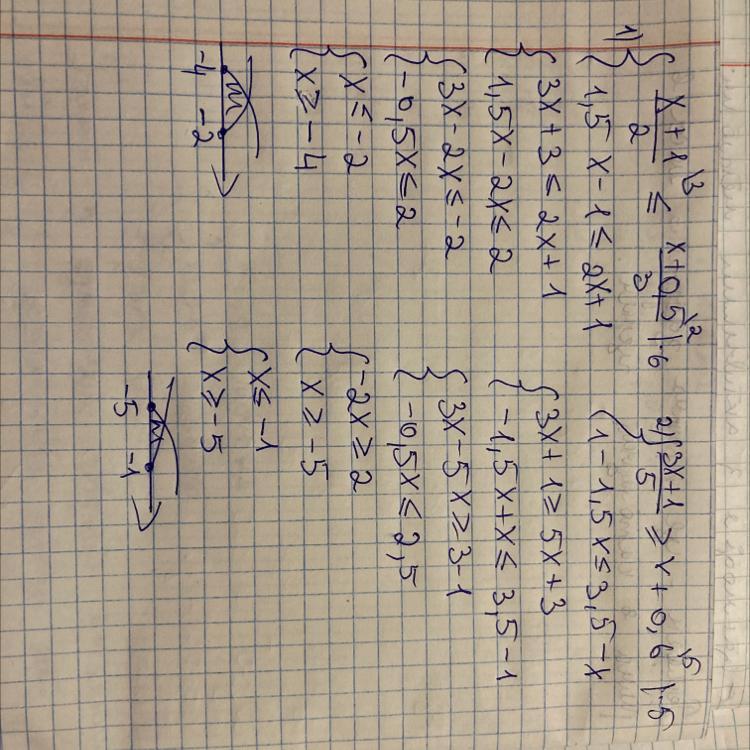 1) { (x+1)/2 \3 ≤ (x+0,5)/3 \2 |·6
1,5x-1≤2x+1
{ 3x+3≤2x+1
1,5x-2x≤2
{ 3x-2x≤-2
-0,5x≤2
{ x≤-2
x≥-4
-4 -2
2) { (3x+1)/5 ≥ x+0,6 \5 |·5
1-1,5x≤3,5-x
{ 3x+1≥5x+3
-1,5x+x≤3,5-1
{ 3x-5x≥3-1
-0,5x≤2,5
{ -2x≥2
x≥-5
{ x≤-1
x≥-5
-5 -1